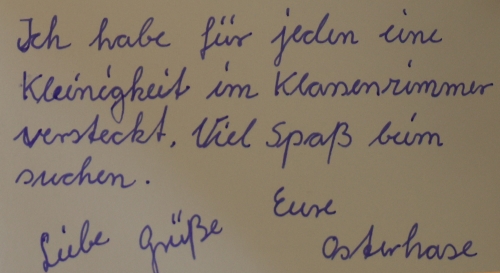 Ich habe für jeden eine
Kleinigkeit im Klassenzimmer
versteckt. Viel Spaß beim
suchen.
Eure
Liebe Grüße
Osterhase